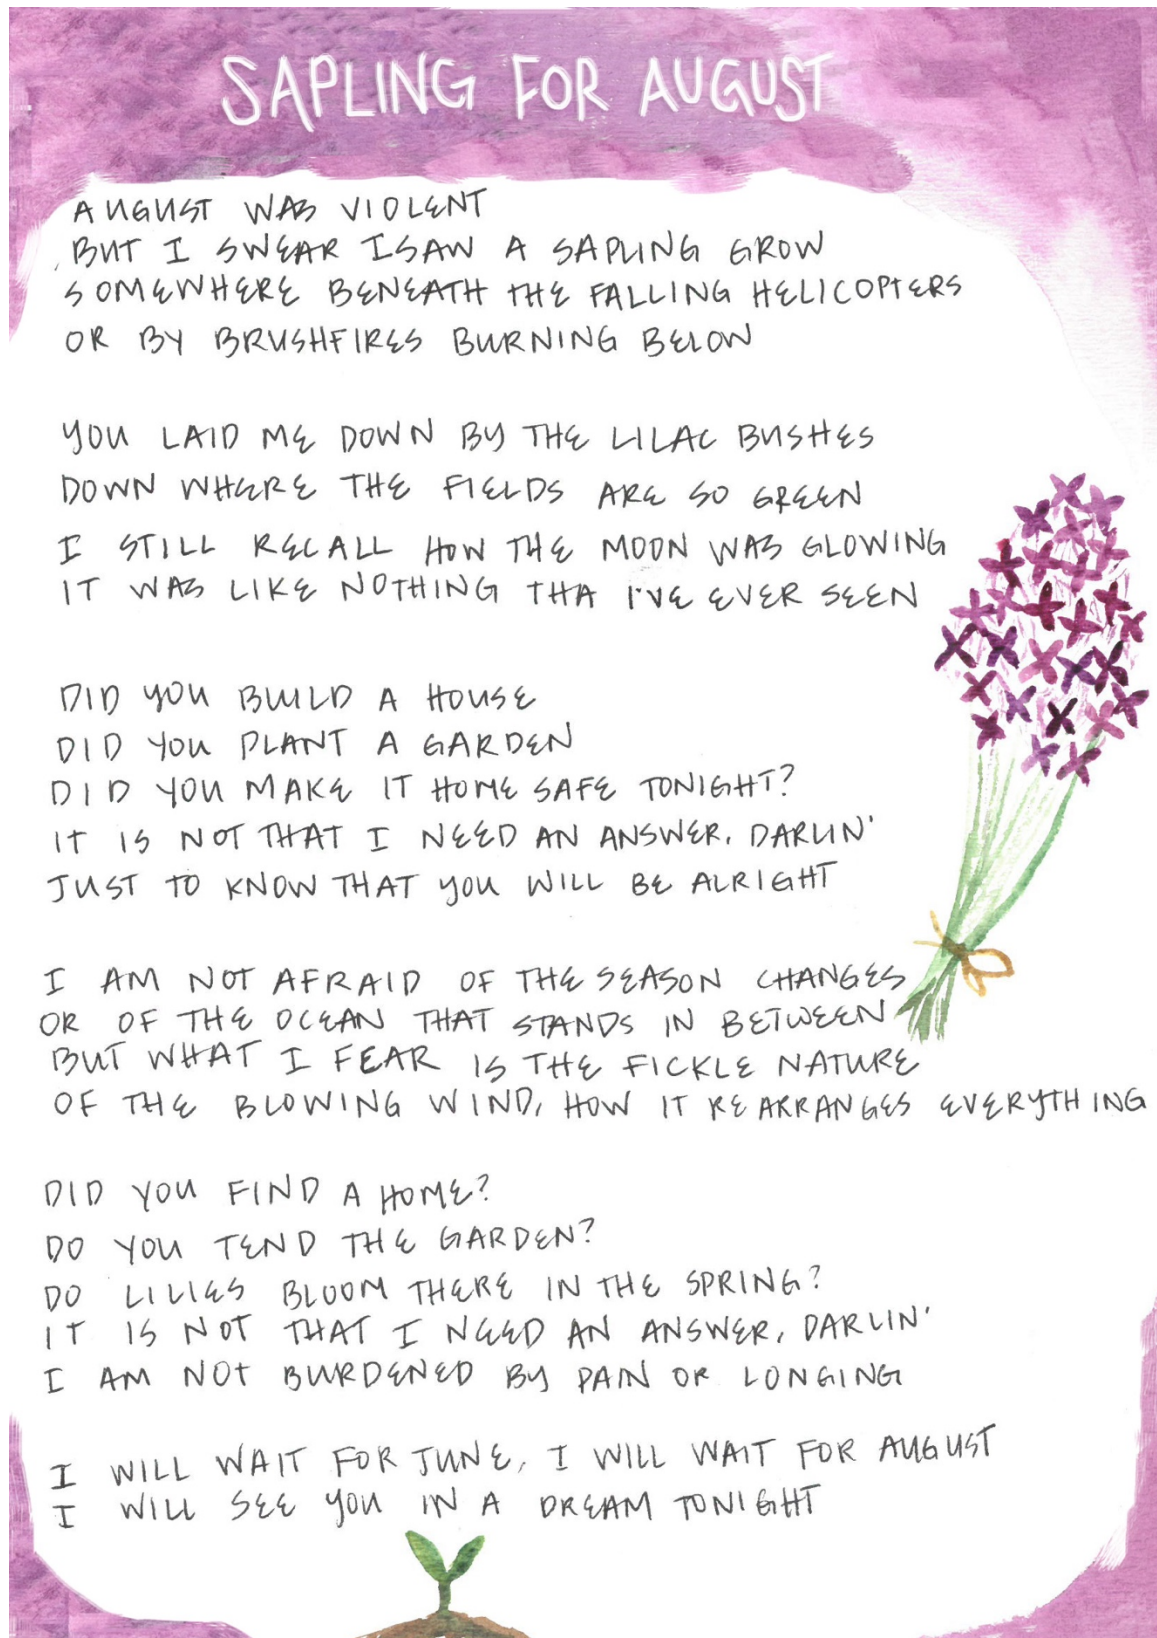 SAPLING FOR AUGUST
AUGUST WAS VIOLENT
BUT I SWEAR I SAW A SAPLING GROW
SOMEWHERE BENEATH THE FALLING HELICOPTERS
OR BY BRUSHFIRES BURNING BELOW
YOU LAID ME DOWN BY THE LILAC BUSHES
DOWN WHERE THE FIELDS ARE SO GREEN
I STILL RECALL HOW THE MOON WAS GLOWING
IT WAS LIKE NOTHING THA I'VE EVER SEEN
DID YOU BUILD A HOUSE
DID YOU PLANT A GARDEN
DID YOU MAKE IT HOME SAFE TONIGHT?
IT IS NOT THAT I NEED AN ANSWER, DARLIN'
JUST TO KNOW THAT YOU WILL BE ALRIGHT
I AM NOT AFRAID OF THE SEASON CHANGES
OR OF THE OCEAN THAT STANDS IN BETWEEN
BUT WHAT I FEAR IS THE FICKLE NATURE
OF THE BLOWING WIND, HOW IT REARRANGES EVERYTHING
DID YOU FIND A HOME?
DO YOU TEND THE GARDEN?
DO LILIES BLOOM THERE IN THE SPRING?
IT IS NOT THAT I NEED AN ANSWER, DARLIN'
I AM NOT BURDENED BY PAIN OR LONGING
I WILL WAIT FOR JUNE, I WILL WAIT FOR AUGUST
I WILL SEE YOU IN A DREAM TONIGHT